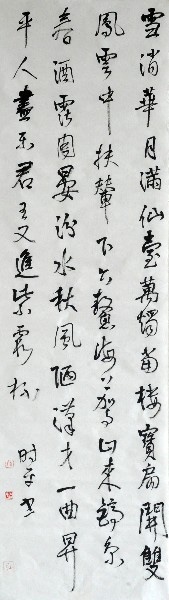 雪消華月滿仙臺萬燭當樓寶扇開雙
鳳雲中扶輦下六鰲海上駕山來鎬京
春酒霑周宴汾水秋風陋漢才一曲昇
平人盡樂君王又進紫霞杯
时平书